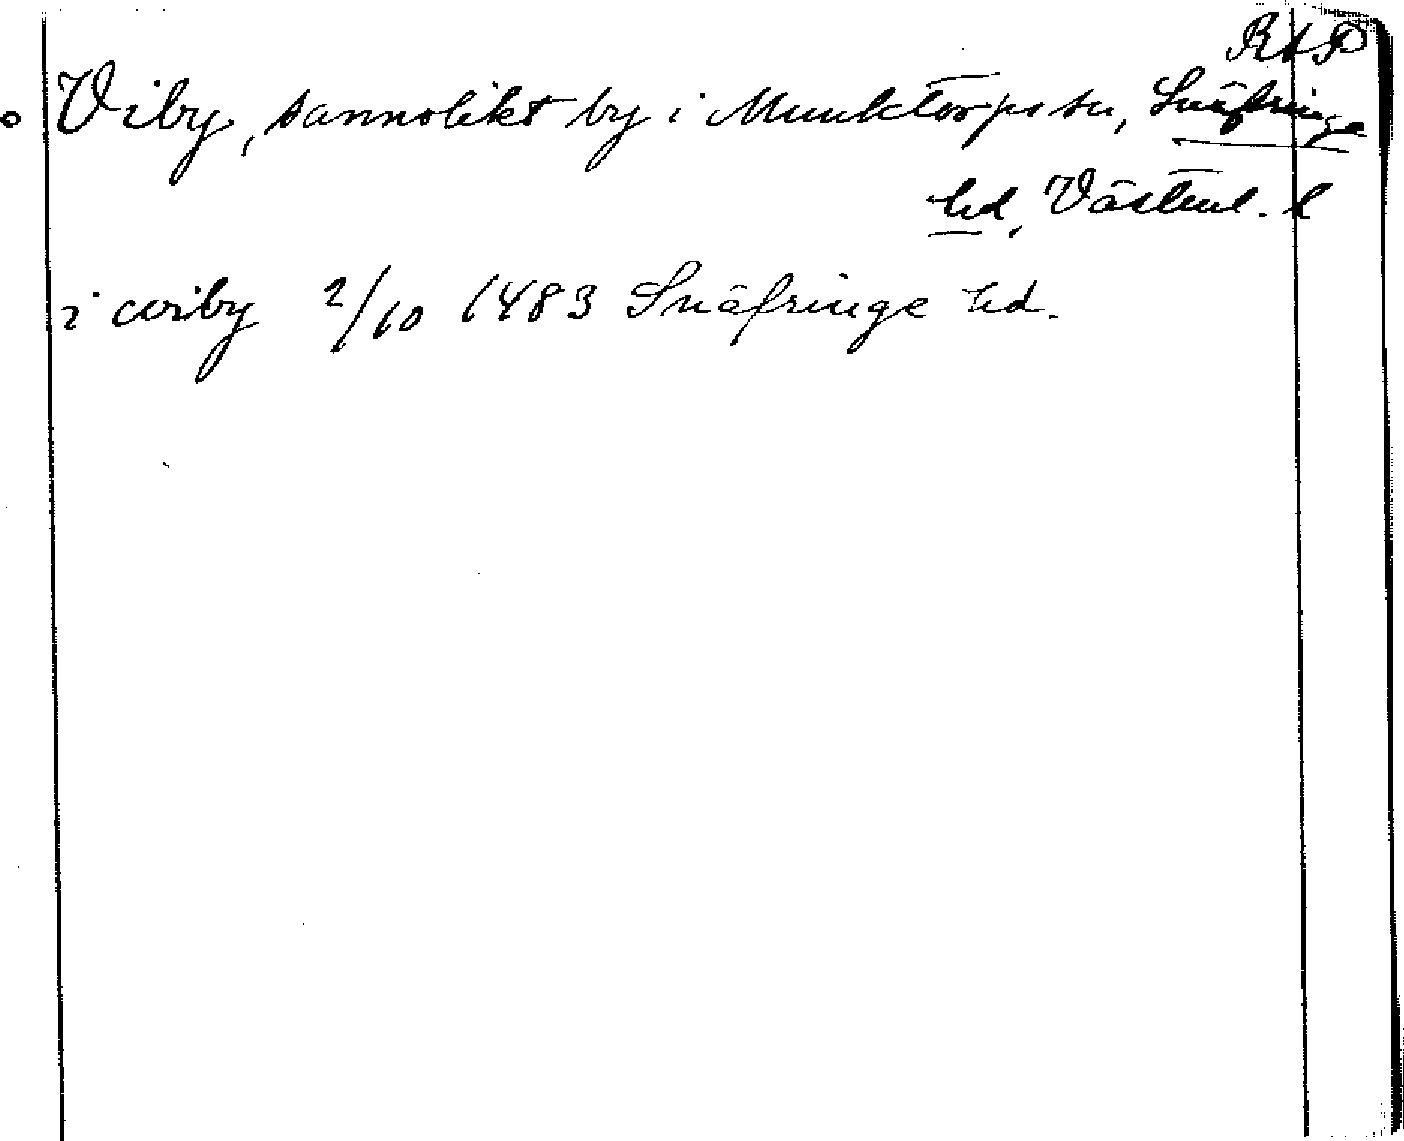 RAP
Viby, sannolikt by i Munktorps sn, Snäfringe
hd, Västml. l
i wiby 2/10 1483 Snäfringe hd.